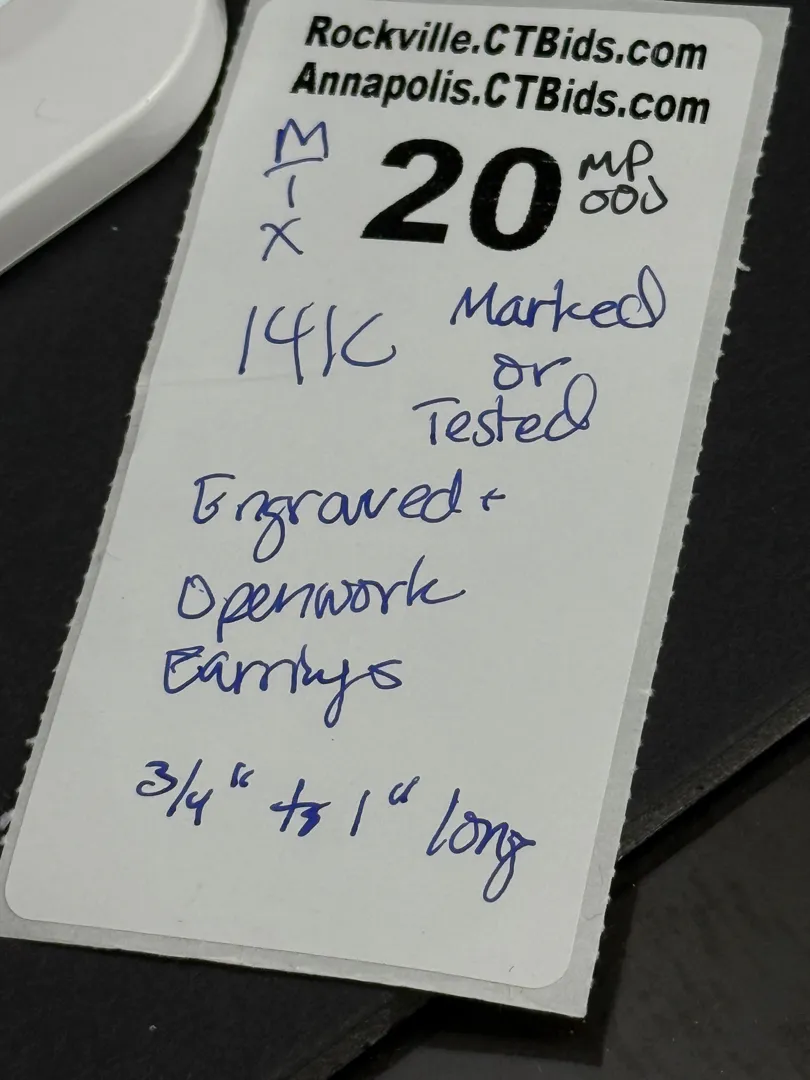 Rockville.CTBids.com
Annapolis.CTBids.com
MIX
20
MP
14K
Marked
or
Tested
Engraved +
Openwork
Earrings
3/4" to 1" long